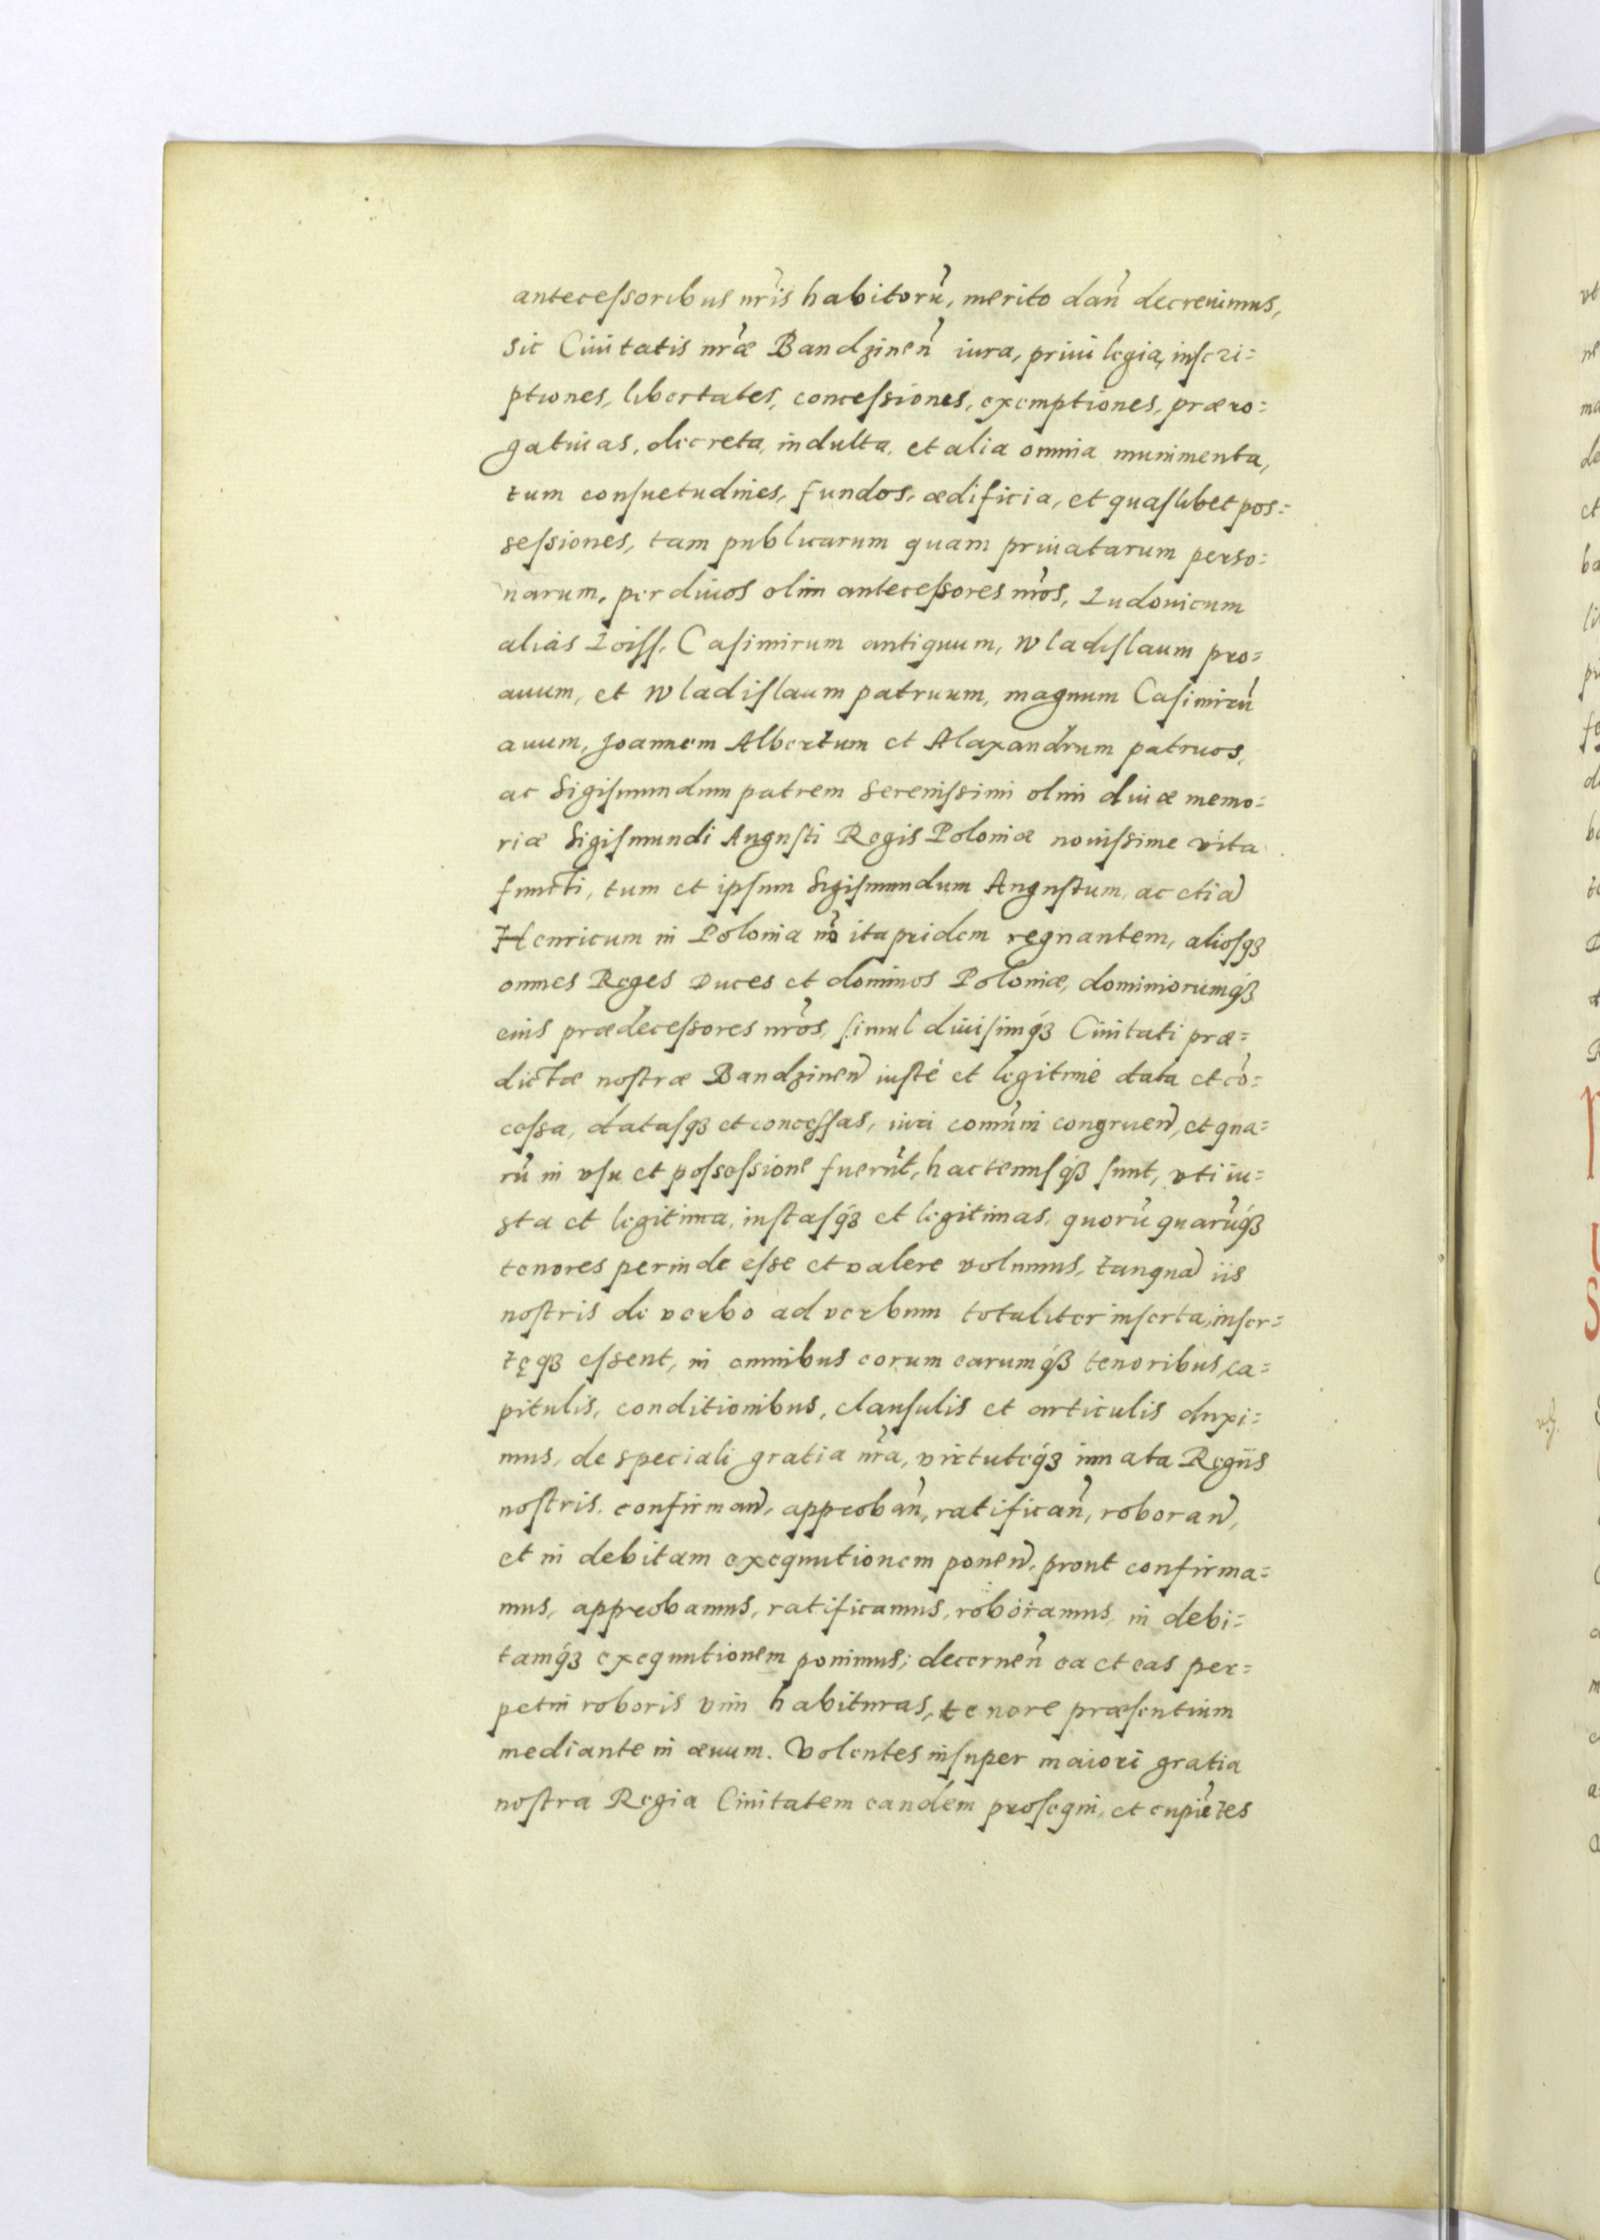 antecessoribus nr̃is habitorũ, merito dañ decreuimus,
sic Ciuitatis nr̃æ Bandzineñ iura, priuilegia, inscri=
ptiones, libertates, concessiones, exemptiones, præro=
gatiuas, decreta, indulta, et alia omnia munimenta,
tum consuetudines, fundos, ædificia, et quaslibet pos=
sessiones, tam publicarum quam priuatarum perso=
narum, per diuos olim antecessores nr̃os, Ludouicum
aliás Loiss, Casimirum antiquum, Wladislaum pro=
auum, et Wladislaum patruum, magnum Casimirũ
auum, Joannem Albertum et Alaxandrum patruos,
ac Sigismundum patrem serenissimi olim diuæ memo=
riæ Sigismundi Augusti Regis Poloniæ nouissime vita
functi, tum et ipsum Sigismundum Augustum, ac etiã
Henricum in Polonia nõ ita pridem regnantem, aliosqꝫ
omnes Reges Duces et dominos Poloniæ, dominiorumqꝫ
eius prædecessores nr̃os, simul diuisimqꝫ Ciuitati præ=
dictæ nostræ Bandzineñ iusté et legitimé data et cõ=
cessa, datasqꝫ et concessas, iuri com̃uni congrueñ, et qua=
rũ in vsu et possessione fuerũt, hactenusqꝫ sunt, vti iu=
sta et legitima, iustasqꝫ et legitimas, quorũ quarũqꝫ
tenores perinde esse et valere volumus, tanquã iis
nostris de verbo ad verbum totaliter inserta, inser=
tęqꝫ essent, in omnibus eorum earumqꝫ tenoribus, ca=
pitulis, conditionibus, clausulis et articulis duxi=
mus, de speciali gratia nr̃a, virtuteqꝫ innata Regiis
nostris. confirmañ, approbañ, ratificañ, roborañ,
et in debitam exequutionem poneñ, prout confirma=
mus, approbamus, ratificamus, roboramus, in debi=
tamqꝫ exequutionem ponimus; decerneñ ea et eas per=
petui roboris vim habituras, tenore præsentium
mediante in æuum. Volentes insuper maiori gratia
nostra Regia Ciuitatem eandem prosequi, et cupiẽtes